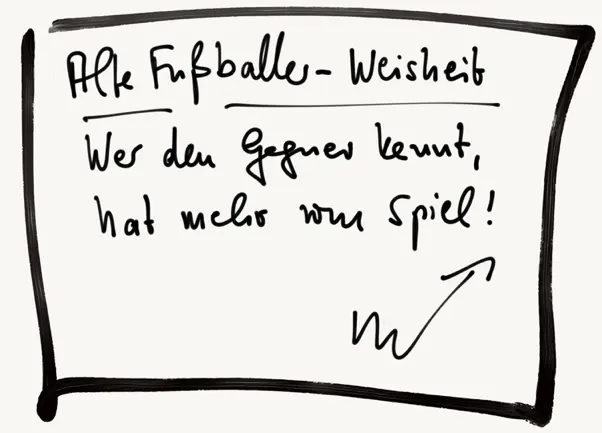 Alte Fußballer-Weisheit
Wer den Gegner kennt,
hat mehr vom Spiel!